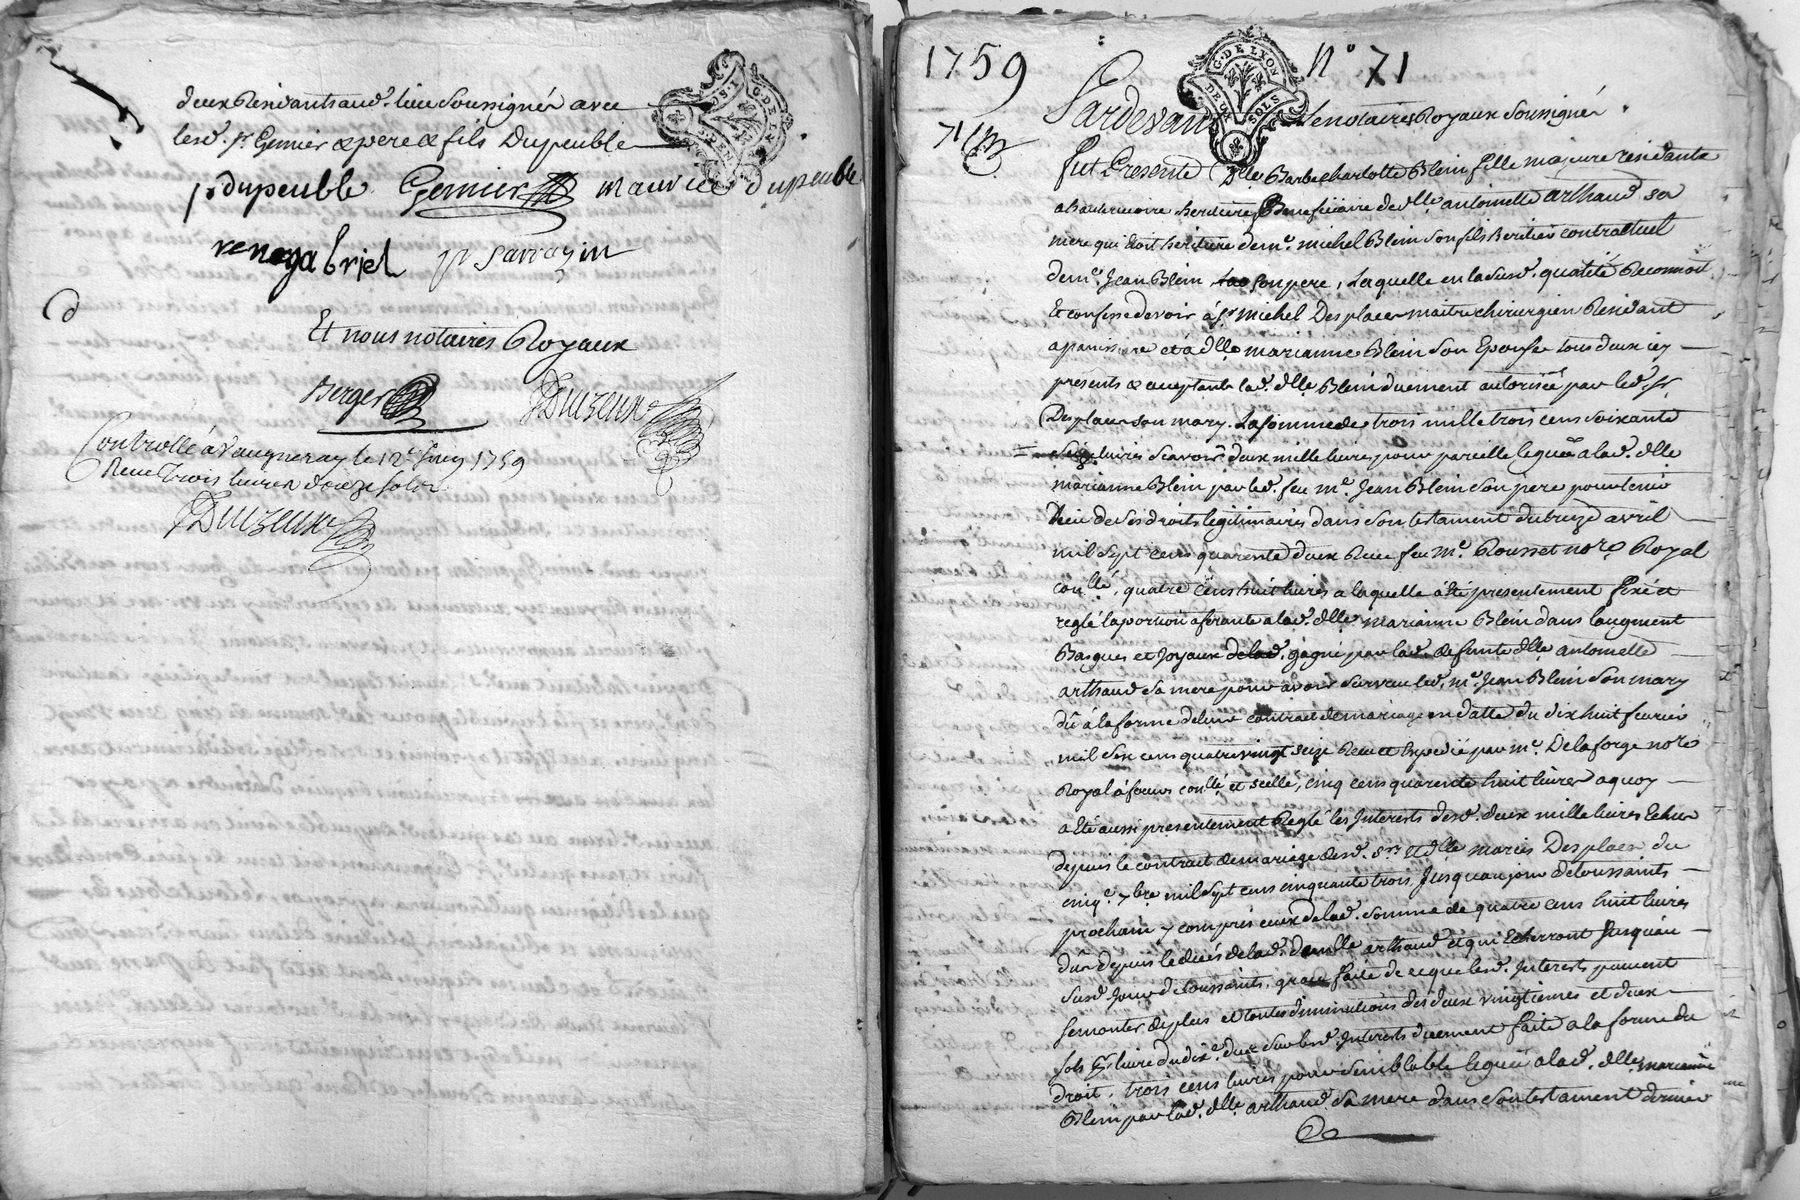 deux Residants aud. lieu Soussignés avec
lesd. sr. Genier & pere & fils Dupeuble
p dupeuble Genier maurice dupeuble
rene gabriel p sarrazin
Et nous notaires Royaux
Berger Duizeux
Controllé à Vaugneray le 12e Juin 1759
Receu Trois livres douze sols
Duizeux
1759 No 71
G. DE LYON
DEUX SOLS
71
Pardevant Le notaires Royaux Soussignés
fut Presente Dlle Barbe charlotte Blein fille majeure residante
a hauterivoire heritiere Beneficiaire de dlle antoinette arthaud sa
mere qui Etoit heritiere de me. michel Blein son fils heritier contractuel
de me. Jean Blein son pere, Laquelle en lad susd. qualité Reconnoit
Et confesse devoir à sr michel Desplaces maitre chirurgien Residant
a panissiere et à dlle marianne Blein son Epouse tous deux icy
presents & acceptants lad. dlle Blein duement autorisée par led. sr.
Desplaces son mary. La somme de trois mille trois cens soixante
livres Scavoir deux mille livres pour pareille leguée a lad. dlle
marianne Blein par led. feu me Jean Blein son pere pour tenir
lieu de ses droits legitimaires dans son testament du treize avril
mil sept cens quarente deux Receu feu me. Rousset nore Royal
conllé, quatre cens huit livres a laquelle a été presentement fixé et
reglé la portion aferante a lad. dlle marianne Blein dans laugment
Bagues et Joyaux de lad. gagné par lad. defunte dlle antoinette
arthaud sa mere pour avoir survecu led. me. Jean Blein son mary
dû à la forme de leur contract de mariage en datte du dix huit fevrier
mil six cens quatre vingt seize Receu et Expedié par me. Delaforge nore
Royal à feurs conllé et scellé, cinq cens quarente huit livres a quoy
a été aussi presentement Reglé les Interests desd. deux mille livres Echus
depuis le contract de mariage desd. srs. et dlle mariés Desplaces du
cinqe. 7bre mil sept cens cinquante trois Jusqu'au jour de toussaints
prochain y compris ceux de lad. somme de quatre cens huit livres
dûs depuis le décés de lad. demlle arthaud et qui Echerront Jusquau
susd. Jour de toussaints, grace faite de ce que lesd. Interests peuvent
se monter de plus et toutes diminutions des deux vingtiemes et deux
sols pr livre du dixe. dues sur lesd. Interests duement faite a la forme du
droit, trois cens livres pour semblable leguée a lad. dlle marianne
Blein par lad. dlle arthaud sa mere dans son testament dernier